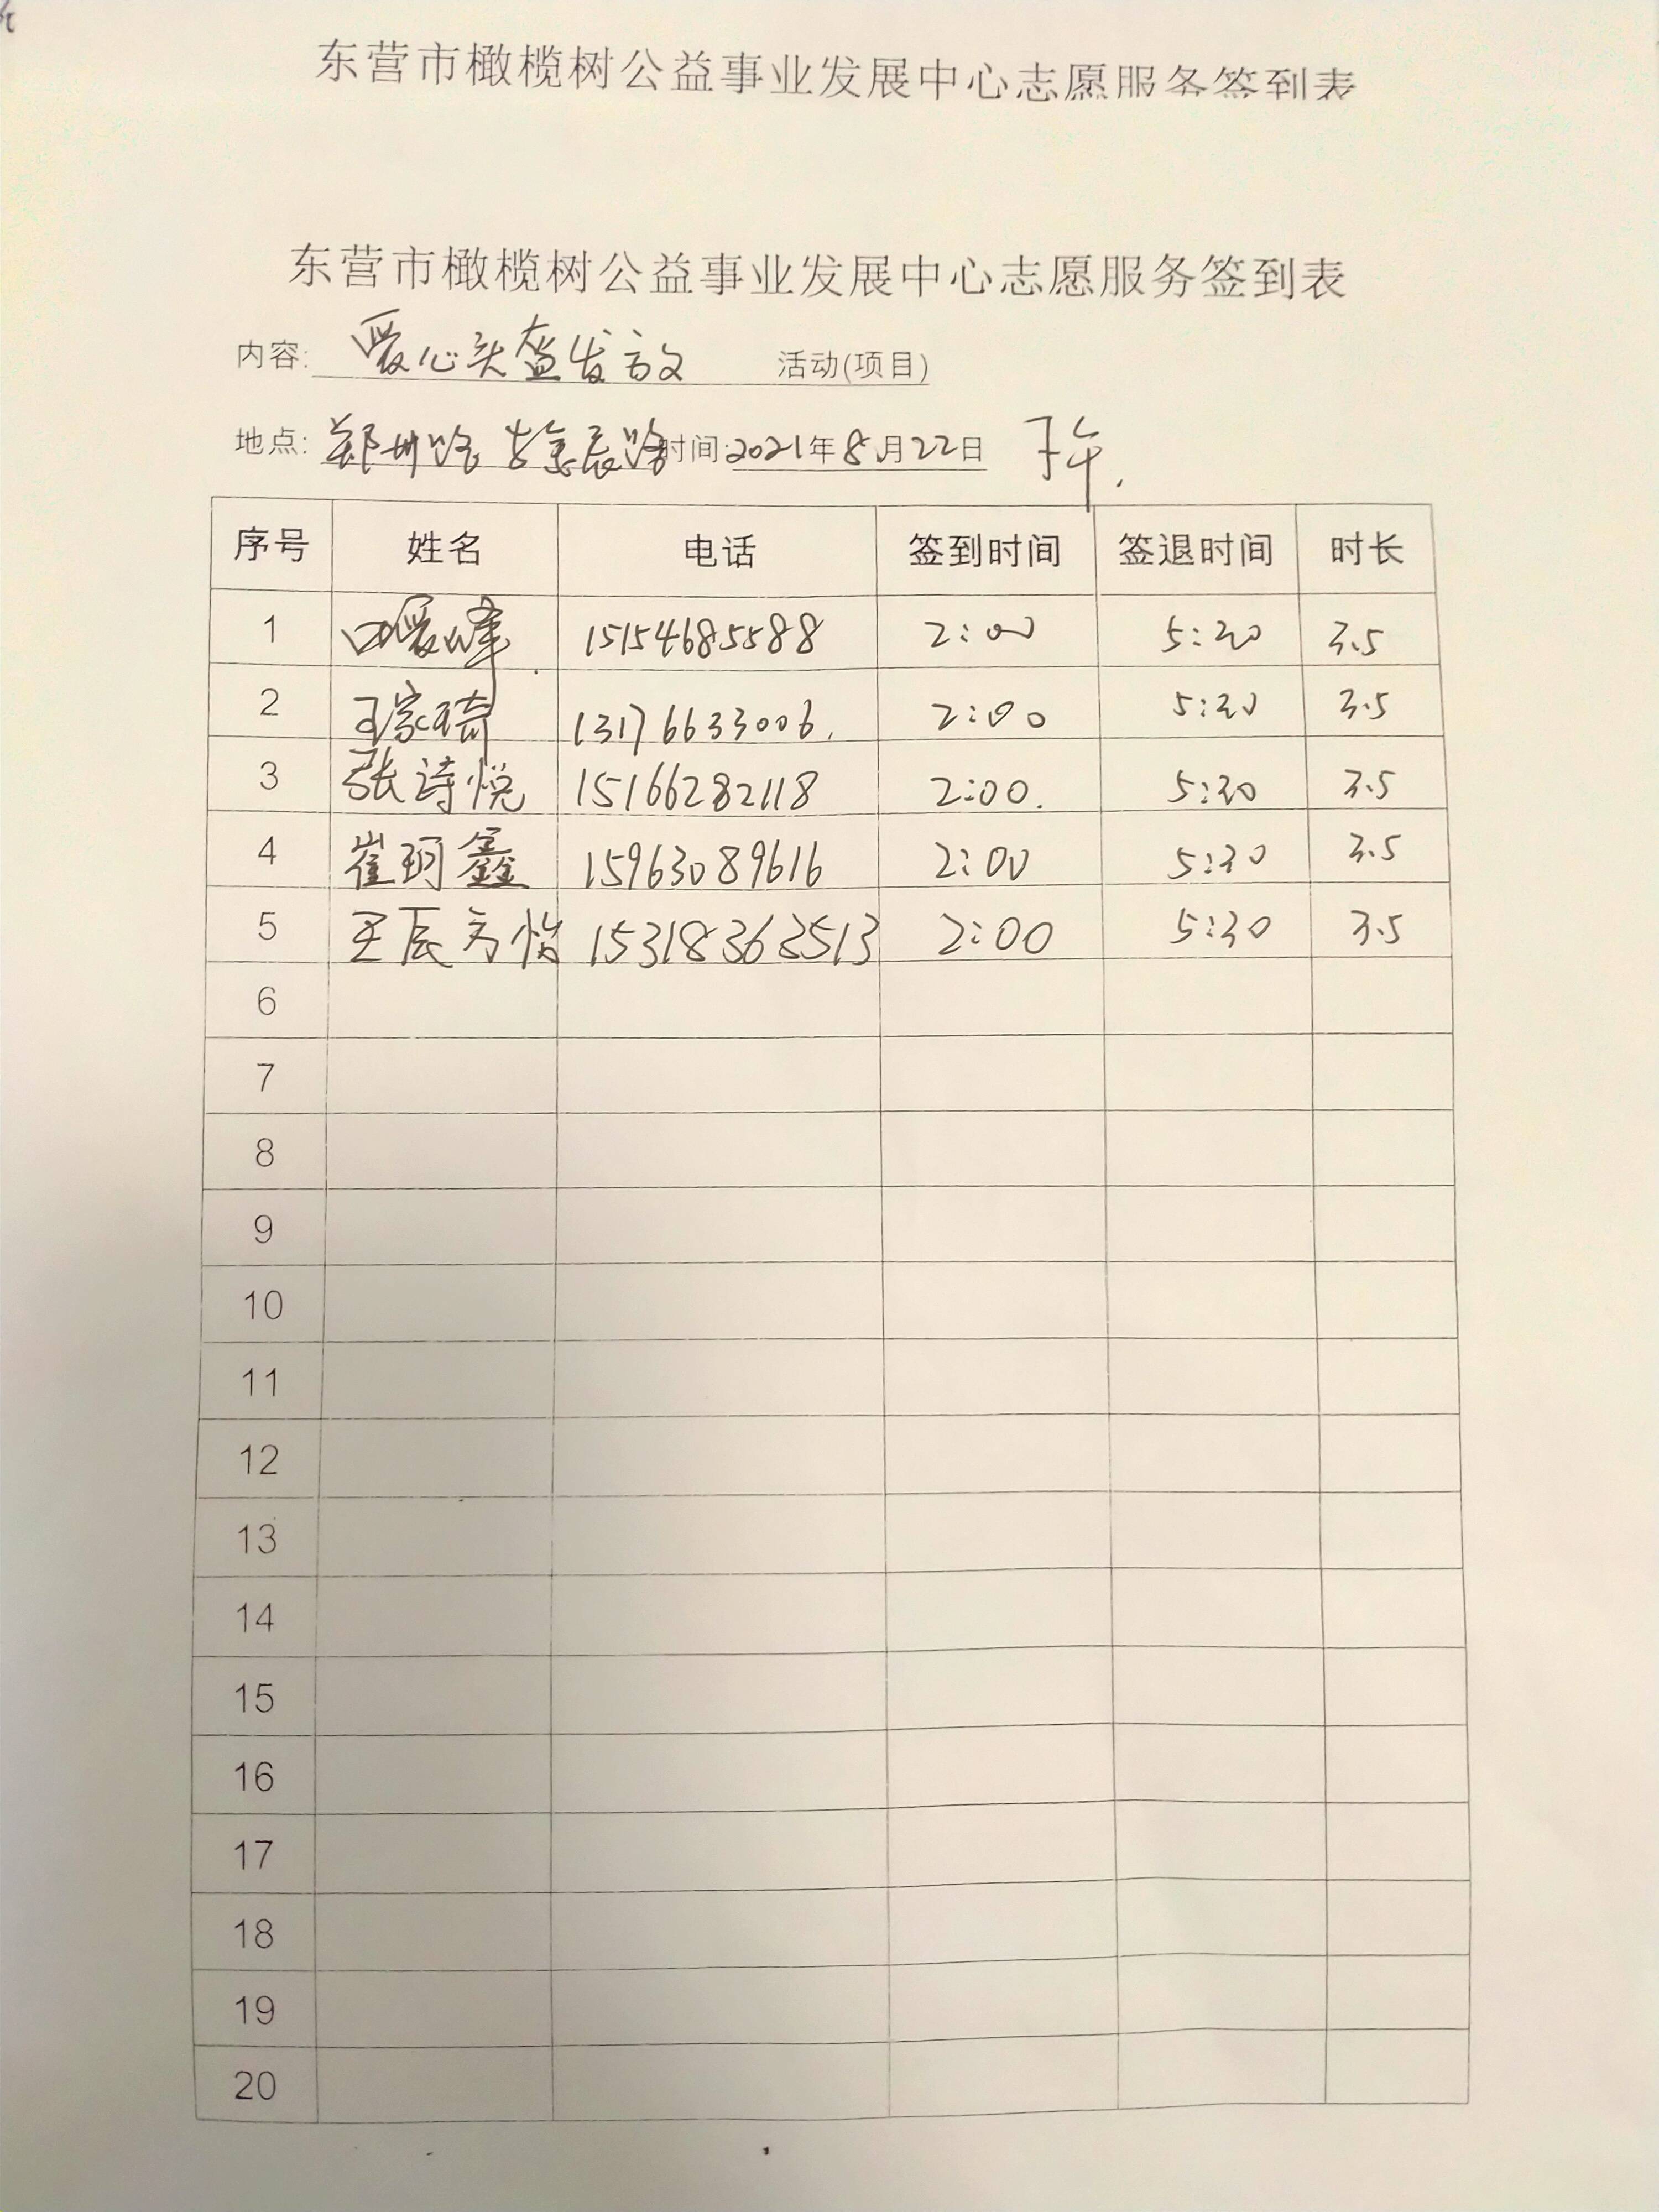 东营市橄榄树公益事业发展中心志愿服务签到表
东营市橄榄树公益事业发展中心志愿服务签到表
内容: 爱心头盔发放 活动(项目)
地点: 郑州路 金辰路 时间:2021年8月22日 下午.
序号 姓名 电话 签到时间 签退时间 时长
1 15154685588 2:00 5:30 3.5
2 王家琦 13176633006. 2:00 5:30 3.5
3 张诗悦 15166282118 2:00. 5:30 3.5
4 崔珂鑫 15963089616 2:00 5:30 3.5
5 王辰方怡 15318362513 2:00 5:30 3.5
6
7
8
9
10
11
12
13
14
15
16
17
18
19
20